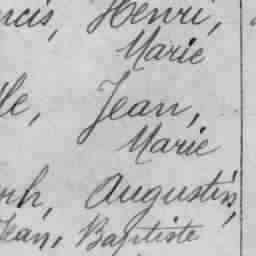 ncis, Henri,
Marie
lle, Jean,
Marie
ph, Augustin,
Jean, Baptiste